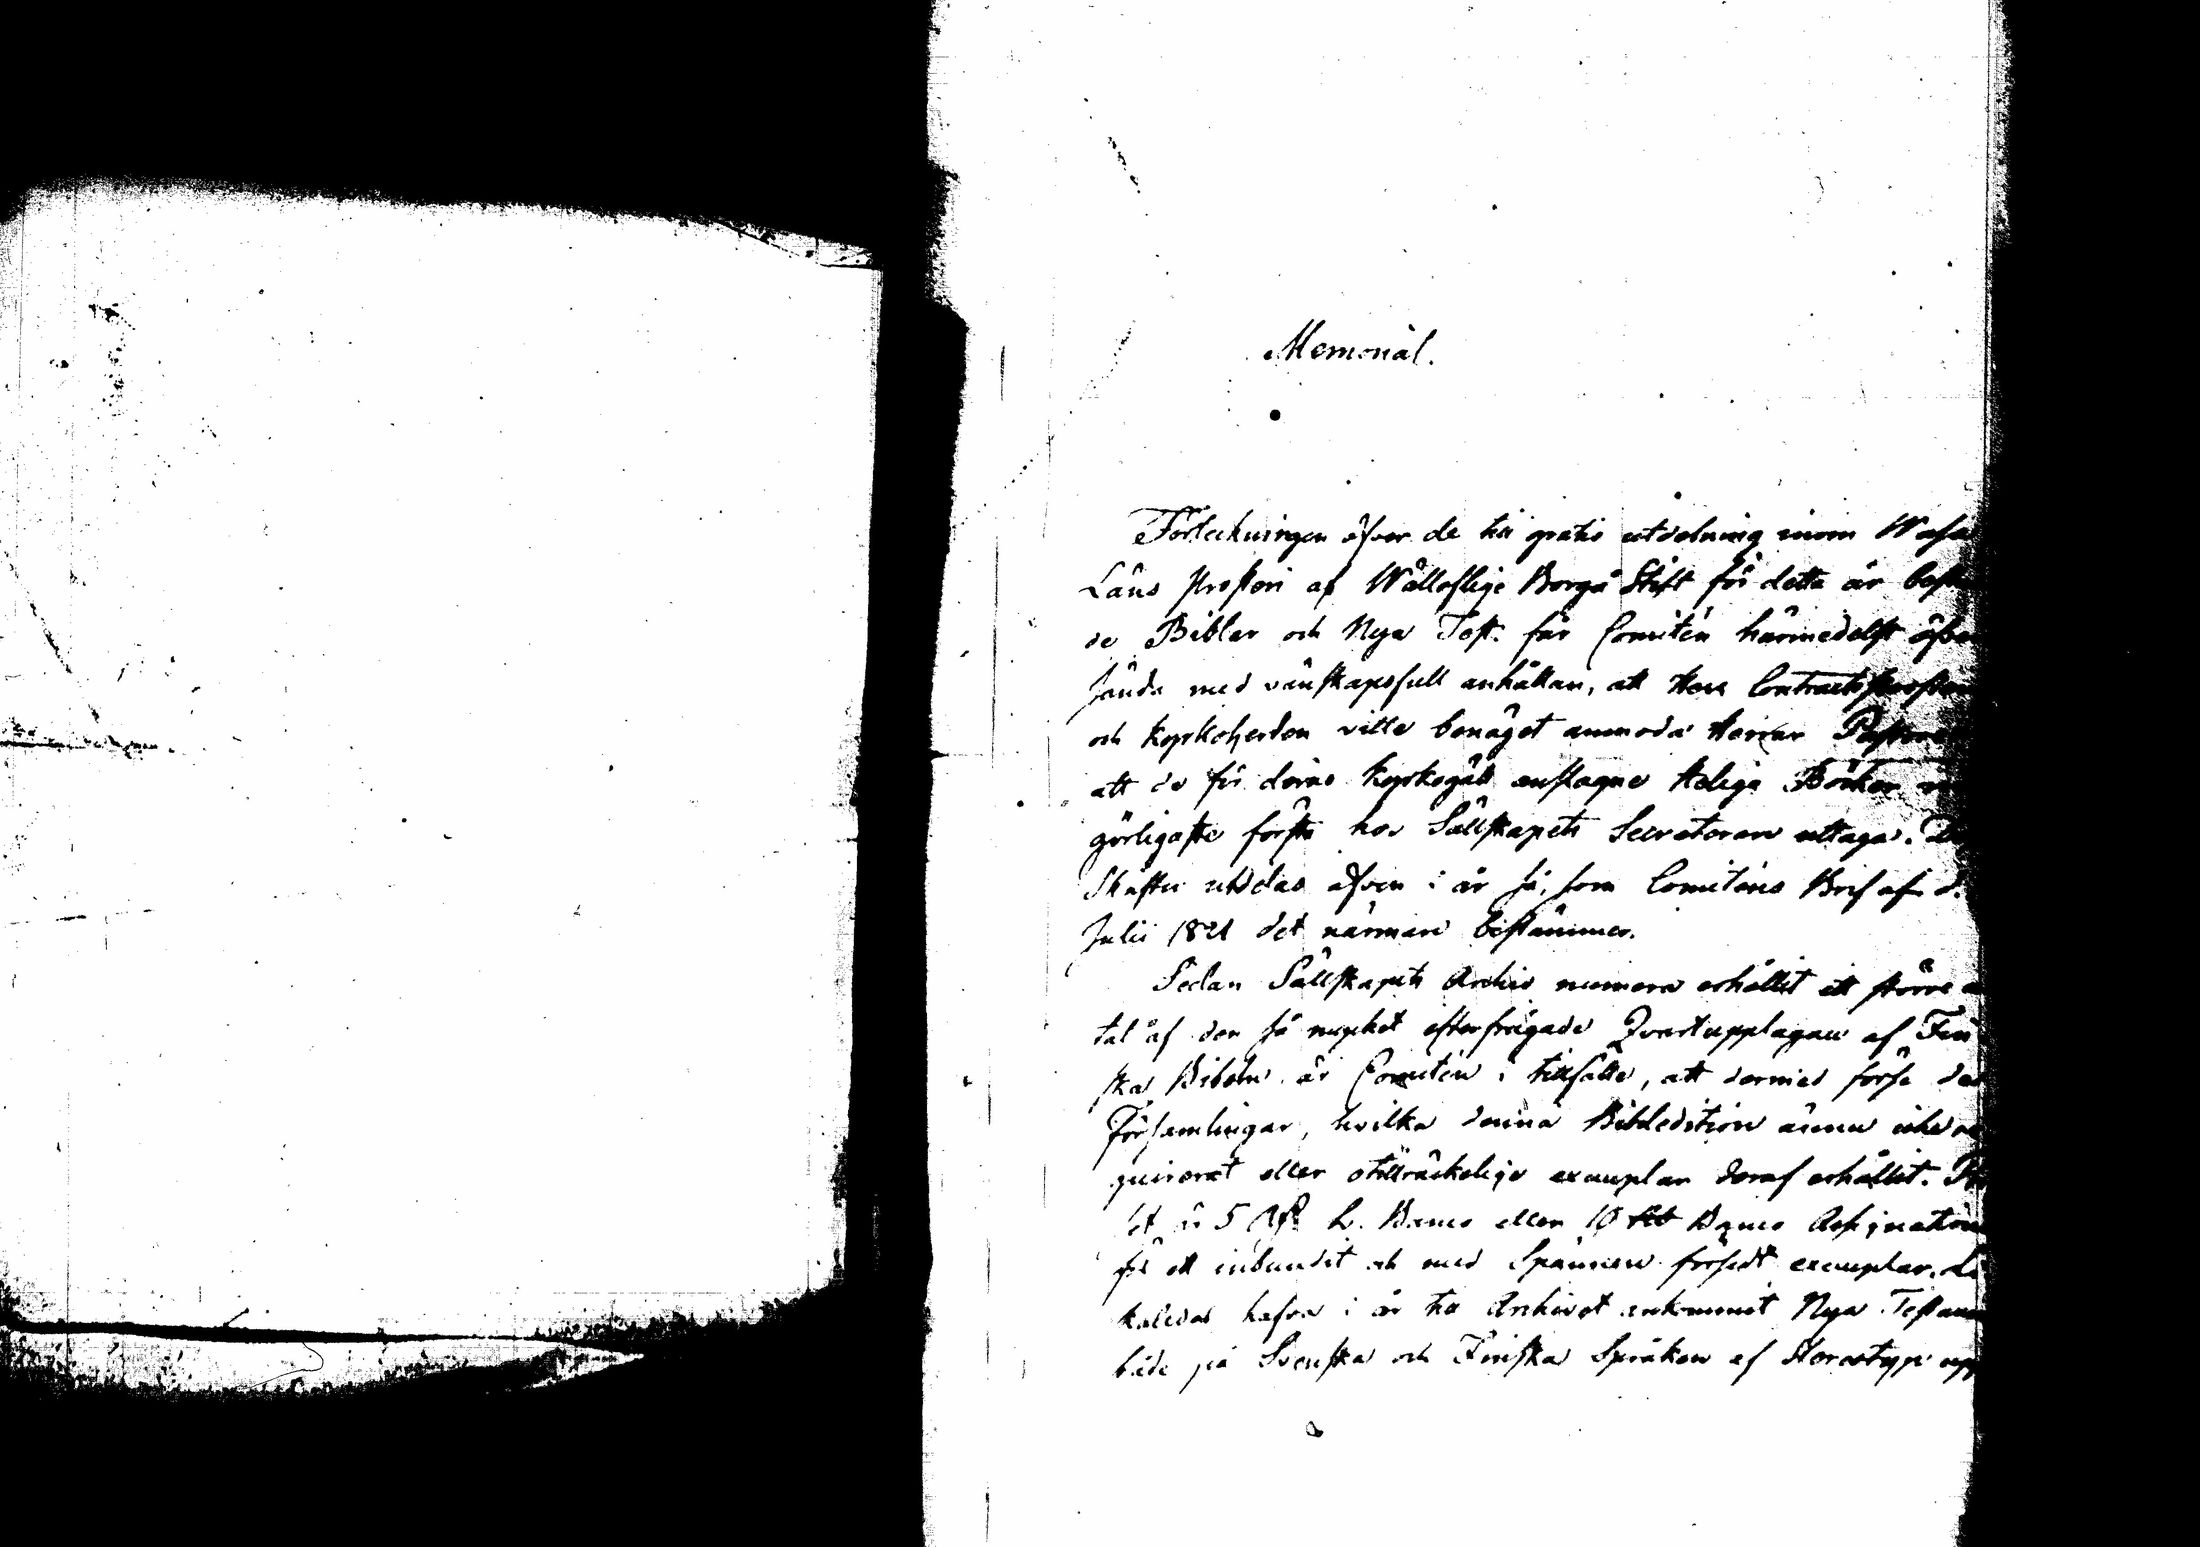 Memorial.
Förteckningen öfver de till gratis utdelning inom Wasa
Läns Prosteri af Wälloflige Borgå Stift för detta år
de Biblar och Nya Test. får Comitén härmedelst
sända med vänskapsfull anhållan, att Herr Contractsprosten
och Kyrkoherden ville benäget anmoda Herrar
att de för deras Kyrkogäll anslagne Heliga Böcker
görligaste första hos Sällskapets Secreterare uttaga.
Skrifter utdelas äfven i år så, som Comiténs Bref af d.
Julii 1821 det närmare bestämmer.
Sedan Sällskapets Archiv numera erhållit ett större
tal af den så mycket efterfrågade Qvartupplagan af Fin
ska Bibeln är Comitén i tillfälle, att dermed förse
Församlingar, hvilka denna Bibeledition ännu icke
quirerat eller otillräckelige exemplar deraf erhållit.
set är 5 B. Banco eller 10 Banco Assignation
för ett inbundit och med Spännen försedt exemplar.
kaledes hafva i år till Archivet ankommit Nya
både på Svenska och Finska Språken af Stereotyp